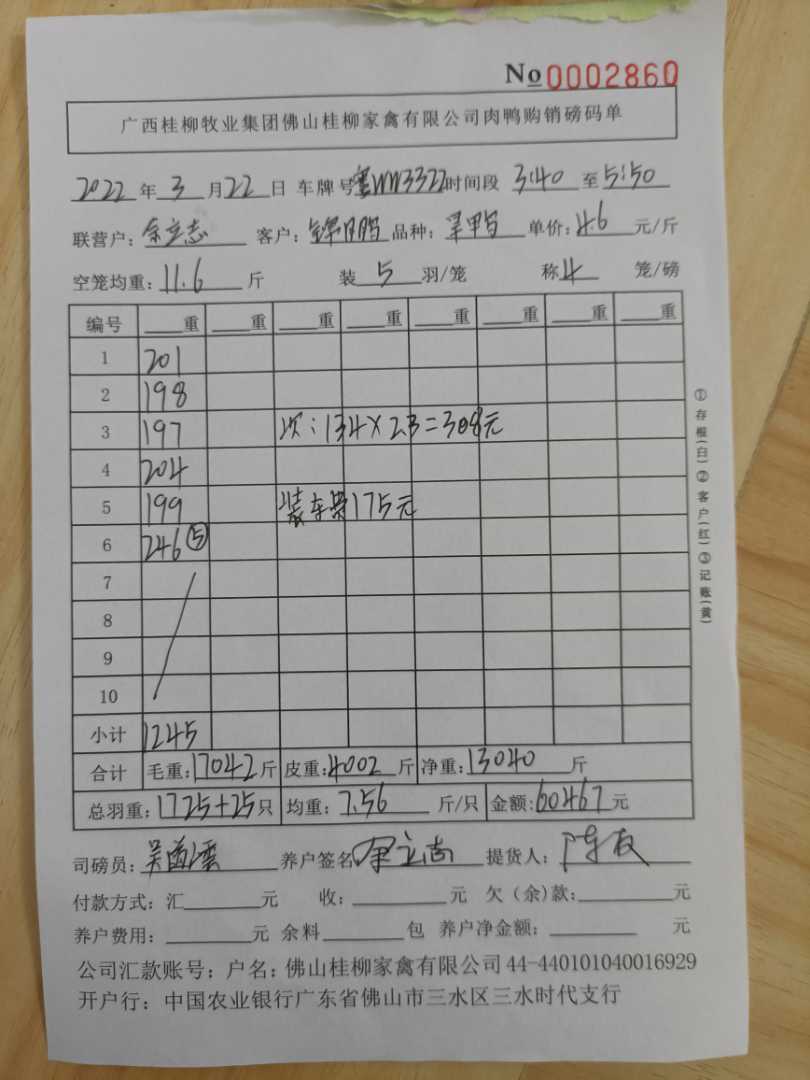 No 0002860
广西桂柳牧业集团佛山桂柳家禽有限公司肉鸭购销磅码单
2022 年 3 月 22 日 车牌号 3322 时间段 3:40 至 5:50
联营户: 余立志 客户: 品种: 单价: 4.6 元/斤
空笼均重: 11.6 斤 装 5 羽/笼 称 4 笼/磅
编号 重 重 重 重 重 重 重 重
1 201
2 198
3 197 次:134×2.3=308元
4 204
5 199 装车费175元
6 246 ⑤
7
8
9
10
小计 1245
合计 毛重: 17042 斤 皮重: 4002 斤 净重: 13040 斤
总羽重: 1725+25 只 均重: 7.56 斤/只 金额: 60467 元
司磅员: 养户签名 余立志 提货人:
付款方式: 汇 元 收: 元 欠(余)款: 元
养户费用: 元 余料 包 养户净金额: 元
公司汇款账号: 户名: 佛山桂柳家禽有限公司 44-440101040016929
开户行: 中国农业银行广东省佛山市三水区三水时代支行
①存根(白)②客户(红)③记账(黄)